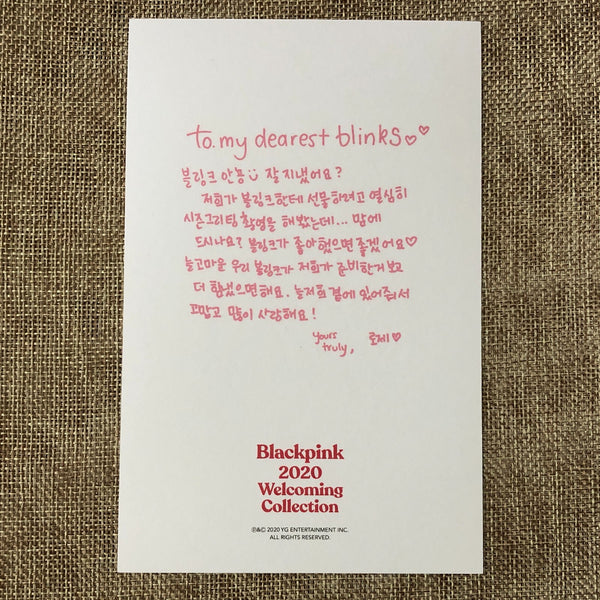 to. my dearest blinks♡♡
블링크 안뇽☺ 잘 지냈어요?
저희가 블링크한테 선물하려고 열심히
시즌그리팅 촬영을 해봤는데... 맘에
드시나요? 블링크가 좋아했으면 좋겠어요♡
늘 고마운 우리 블링크가 저희가 준비한거 보고
더 힘냈으면해요. 늘 저희 곁에 있어줘서
고맙고 많이 사랑해요!
yours
truly, 로제♡
Blackpink
2020
Welcoming
Collection
℗&© 2020 YG ENTERTAINMENT INC.
ALL RIGHTS RESERVED.